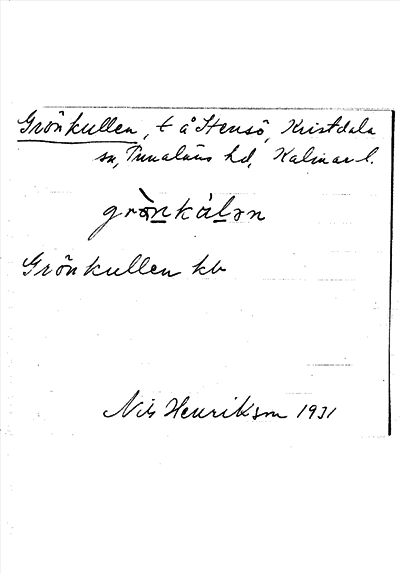 Grönkullen, t å Hensö, Kristdala
sn, Tunaläns hd, Kalmar l.
grò̀nkálən
Grönkullen kb
Nils Henrikson 1931